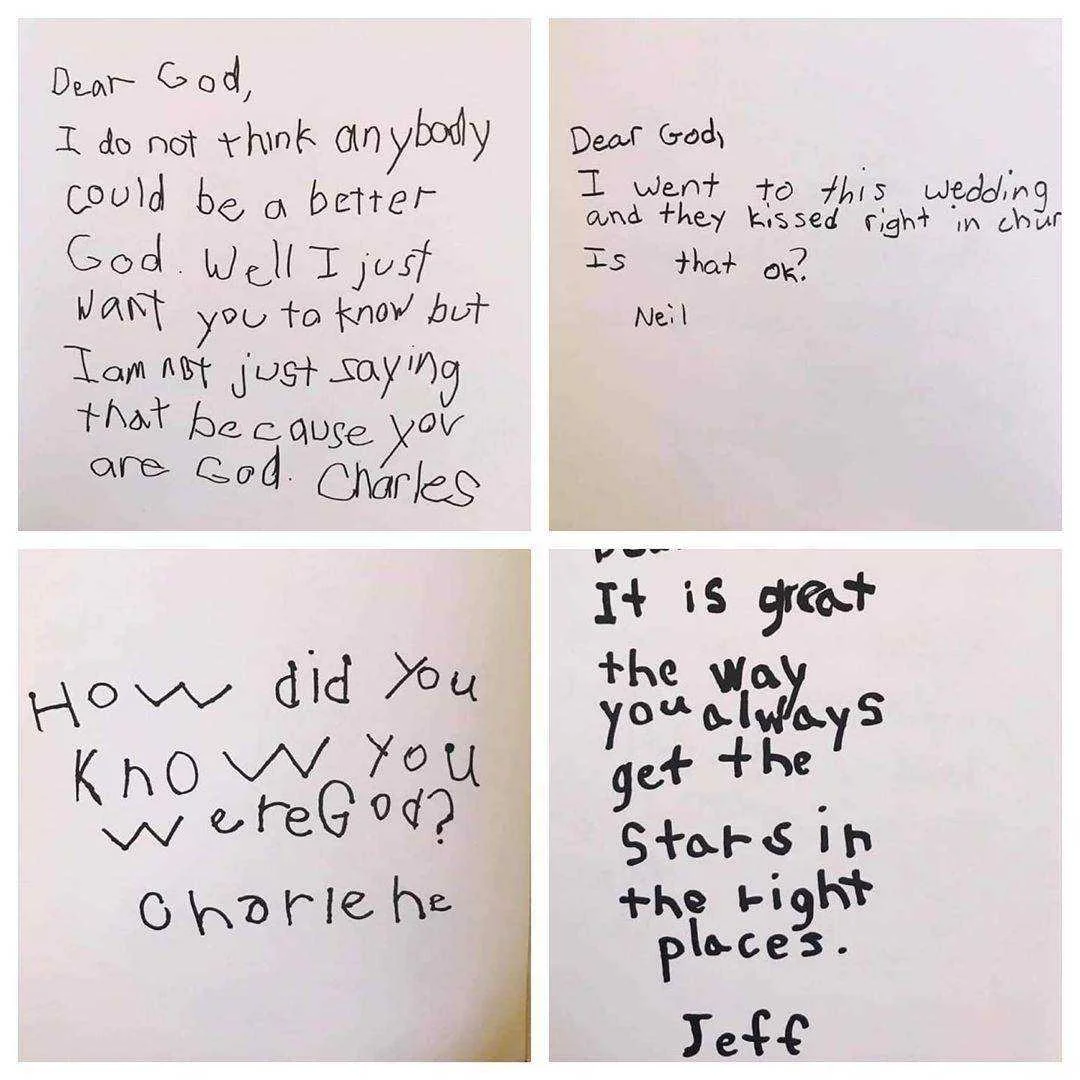 Dear God,
I do not think anybody
could be a better
God. Well I just
want you to know but
I am not just saying
that because you
are God. Charles
Dear God,
I went to this wedding
and they kissed right in chur
Is that ok?
Neil
How did you
know you
were God?
Charlene
It is great
the way
you always
get the
stars in
the right
places.
Jeff